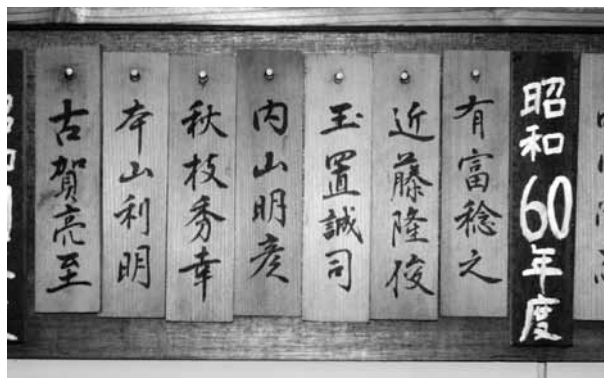 昭和60年度
有富稔之
近藤隆俊
玉置誠司
内山明彦
秋枝秀幸
本山利明
古賀亮至